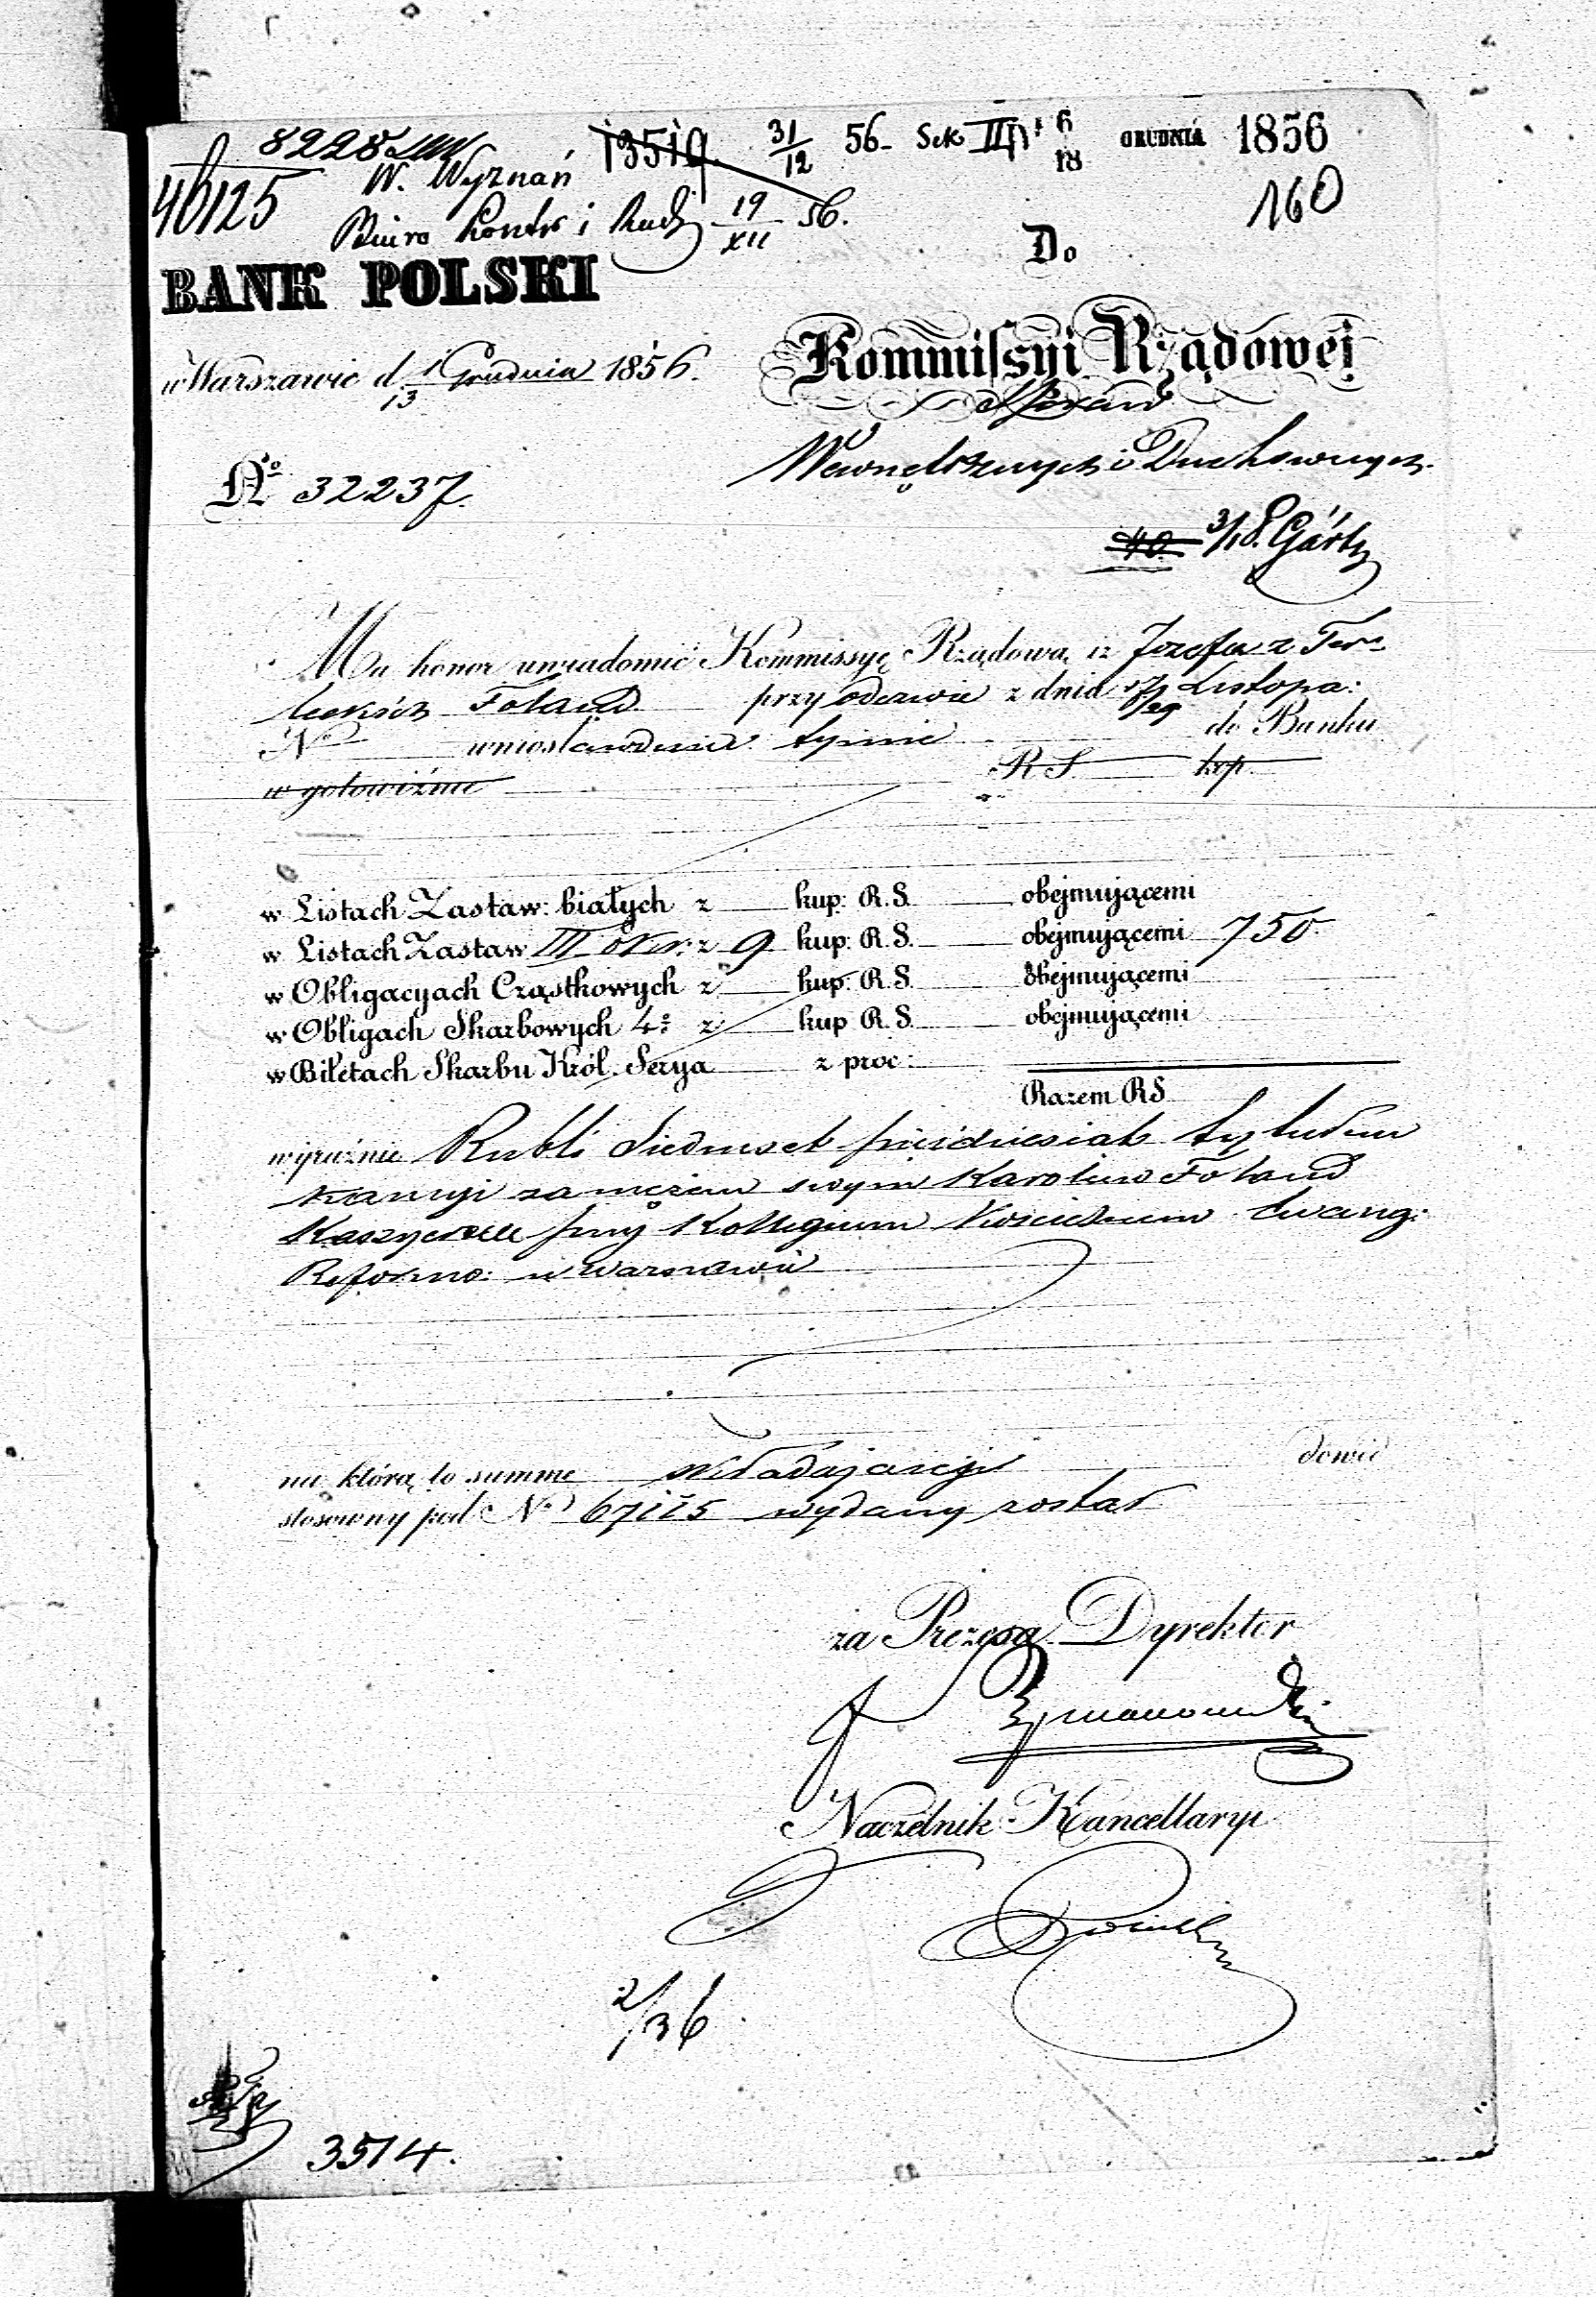 8228
46125
W. Wyznań
13519
31/12 56. Sek III 6/18 GRUDNIA 1856
160
Biuro Kontr i Rach 19/XII 56.
BANK POLSKI
Do
Kommissyi Rządowej
Spraw
Wewnętrznych i Duchownych
w Warszawie d. 1/13 Grudnia 1856.
No 32237.
40. 3/18. Gärtz
Ma honor uwiadomić Kommissyę Rządową iż Jozefa z Ter=
leckich Foland przy odezwie z dnia 17/29 Listopa:
No wniosła do Banku
w gotowiźnie RS kop.
w Listach Zastaw: białych z kup: R.S. obejmującemi
w Listach Zastaw III okr. z 9 kup: R.S. obejmującemi 750.
w Obligacyach Cząstkowych z kup: R.S. obejmującemi
w Obligach Skarbowych 4% z kup R.S. obejmującemi
w Biletach Skarbu Król. Serya z proc:
Razem RS
wyraźnie Rubli Siedmset pięćdziesiąt tytułem
kaucyi za mężem swym Karolem Foland
Kassyerem przy Kollegium Kościelnem Ewang:
Reform: w Warszawie
na którą to summę Składającej dowód
stosowny pod No 67115 wydany został
za Prezesa Dyrektor
Naczelnik Kancellaryi
2/36
3514.